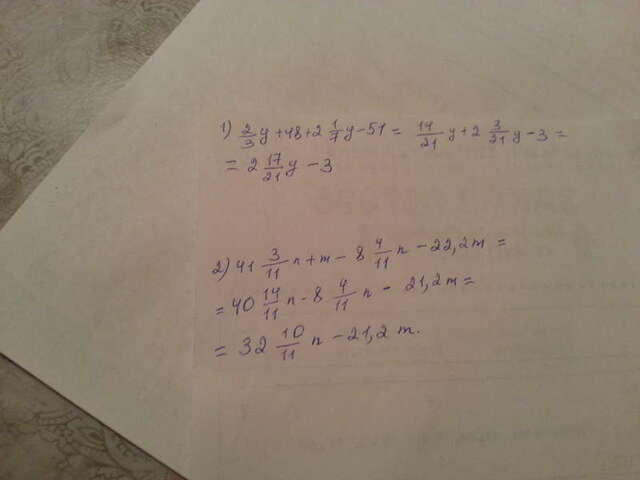 1) 2/3 y + 48 + 2 1/7 y - 51 = 14/21 y + 2 3/21 y - 3 =
= 2 17/21 y - 3
2) 41 3/11 n + m - 8 4/11 n - 22,2 m =
= 40 14/11 n - 8 4/11 n - 21,2 m =
= 32 10/11 n - 21,2 m.